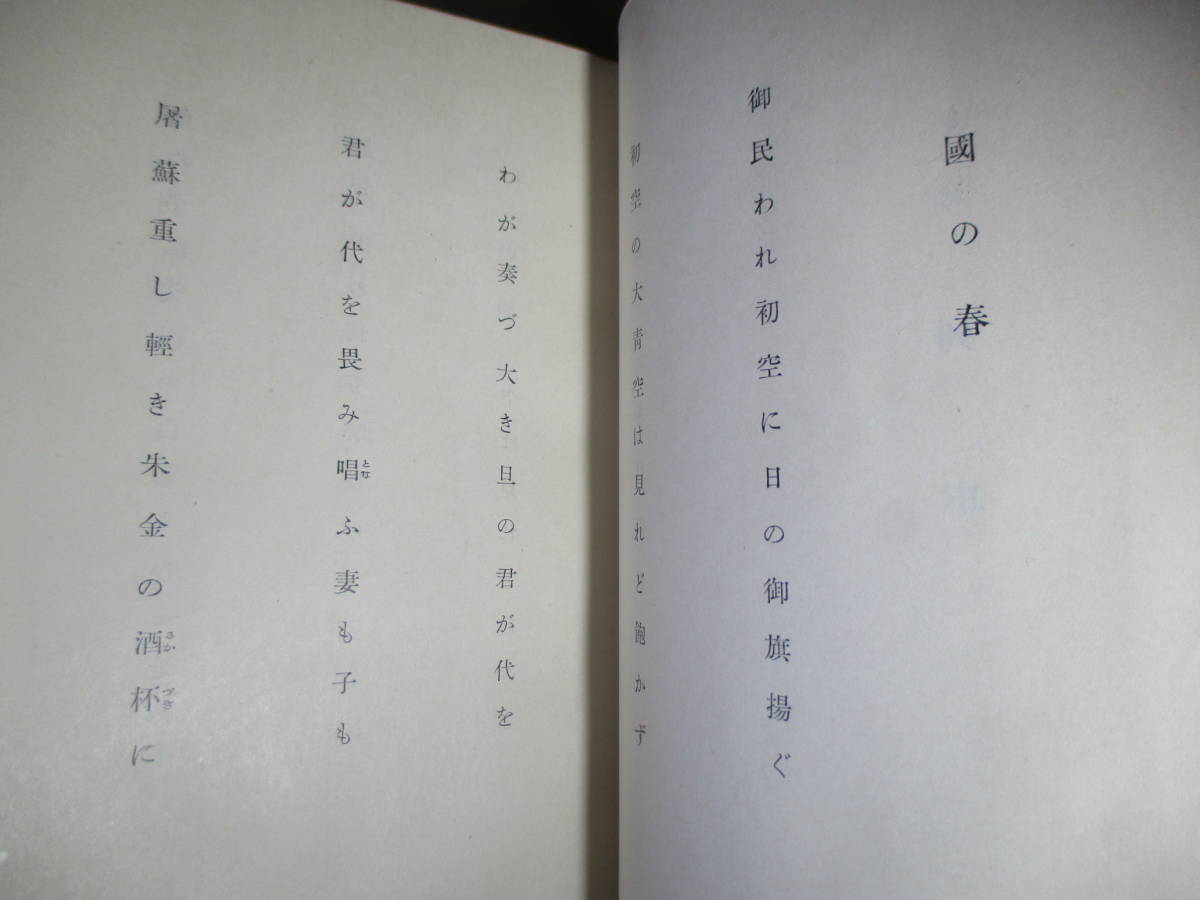 國の春
御民われ初空に日の御旗揚ぐ
初空の大青空は見れど飽かず
わが奏づ大き旦の君が代を
君が代を畏み唱ふ妻も子も
とな
屠蘇重し輕き朱金の酒杯に
さかづき